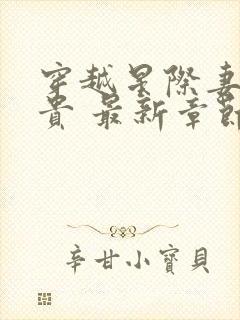 穿越星際妻
貴 最新章節
辛甘小寶貝